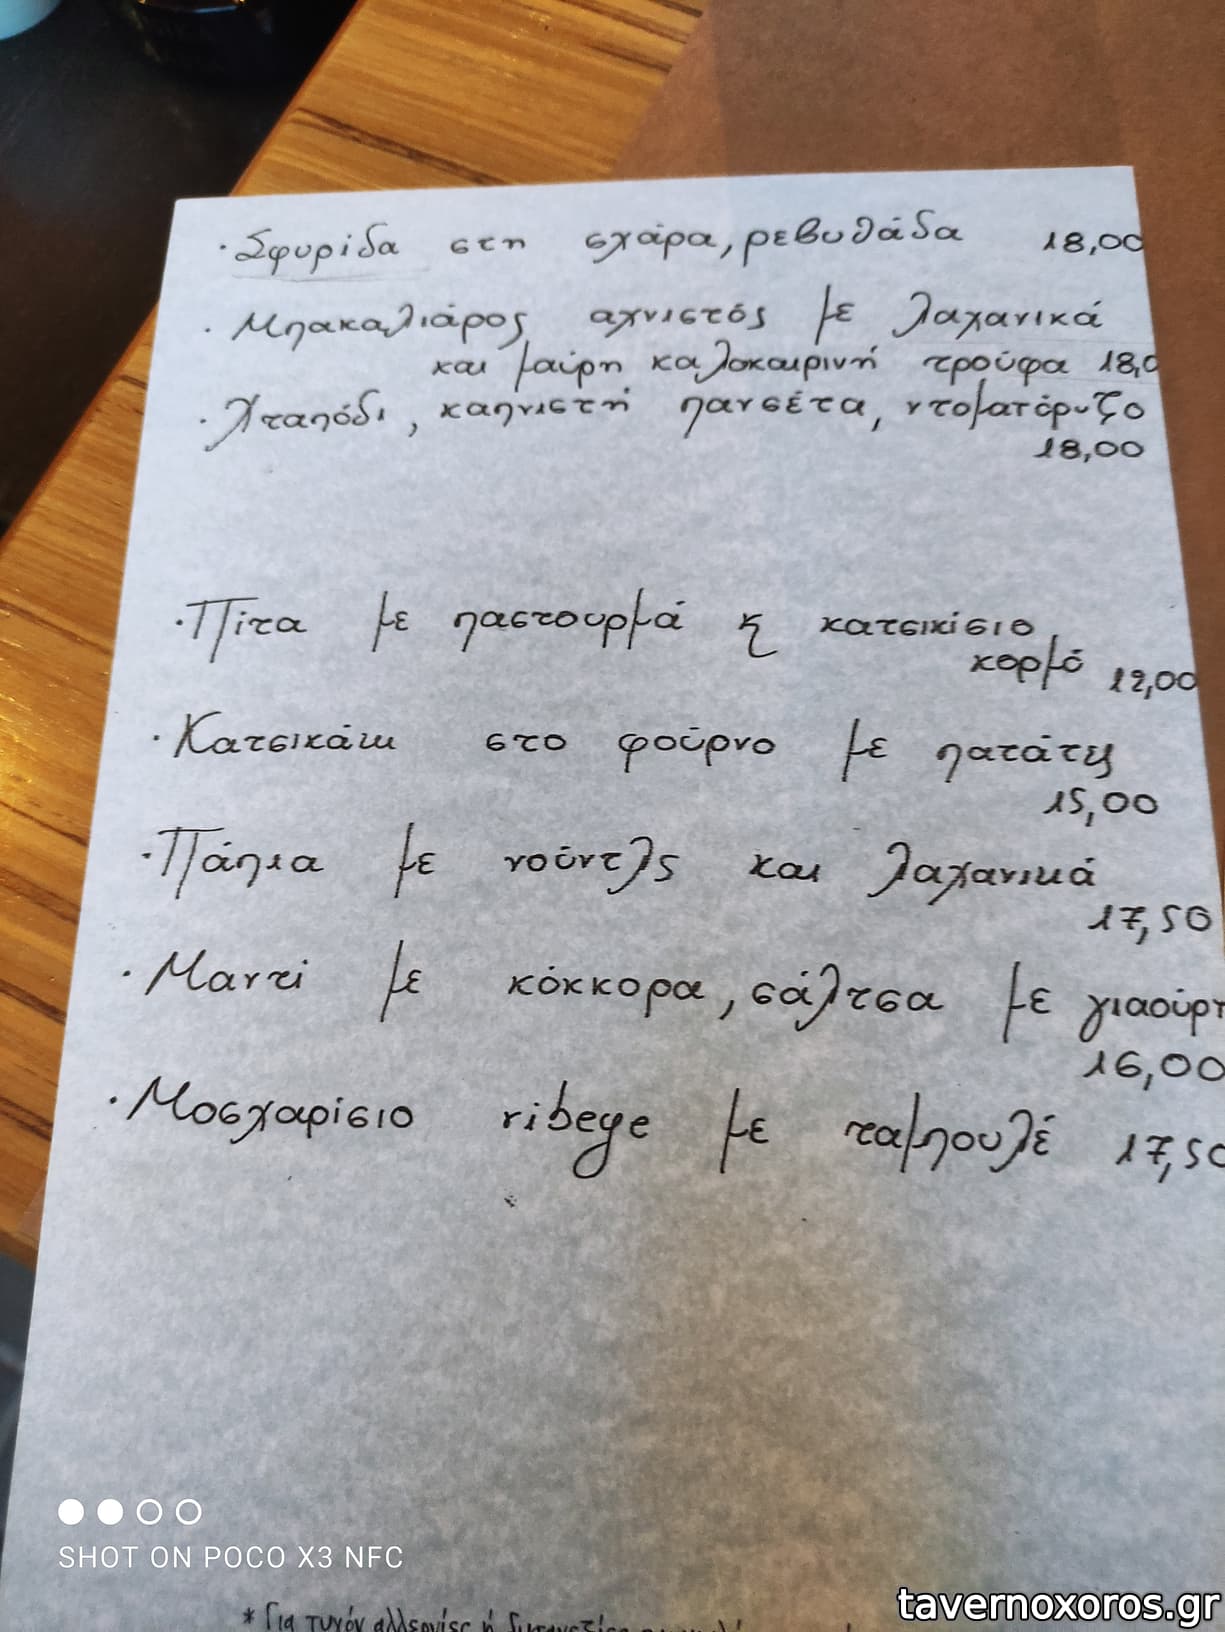 · Σφυρίδα στη σχάρα, ρεβυθάδα 18,00
· Μπακαλιάρος αχνιστός με λαχανικά
και μαύρη καλοκαιρινή τρούφα 18,0
· Χταπόδι, καπνιστή πανσέτα, ντοματόρυζο
18,00
· Πίτα με παστουρμά κ κατσικίσιο
κορμό 12,00
· Κατσικάκι στο φούρνο με πατάτες
15,00
· Πάπια με νούντλς και λαχανικά
17,50
· Μαντί με κόκκορα, σάλτσα με γιαούρτ
16,00
· Μοσχαρίσιο ribeye με ταμπουλέ 17,50
* Για τυχόν αλλεργίες ή
SHOT ON POCO X3 NFC
tavernoxoros.gr